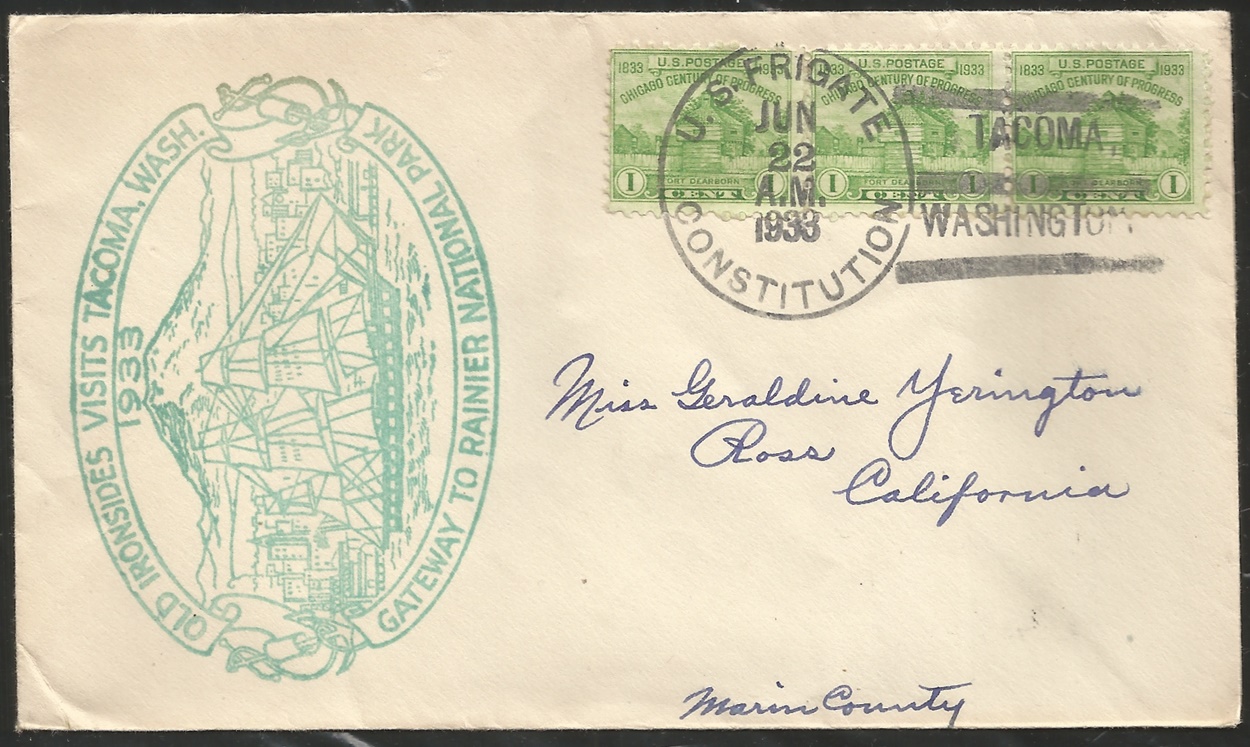 OLD IRONSIDES VISITS TACOMA, WASH.
1933
GATEWAY TO RAINIER NATIONAL PARK
1833 U.S. POSTAGE 1933
CHICAGO CENTURY OF PROGRESS
FORT DEARBORN
1 CENT 1
1833 U.S. POSTAGE 1933
CHICAGO CENTURY OF PROGRESS
FORT DEARBORN
1 CENT 1
1833 U.S. POSTAGE 1933
CHICAGO CENTURY OF PROGRESS
FORT DEARBORN
1 CENT 1
U.S. FRIGATE
JUN
22
A.M.
1933
CONSTITUTION
TACOMA,
WASHINGTON
Miss Geraldine Yerington
Ross
California
Marin County